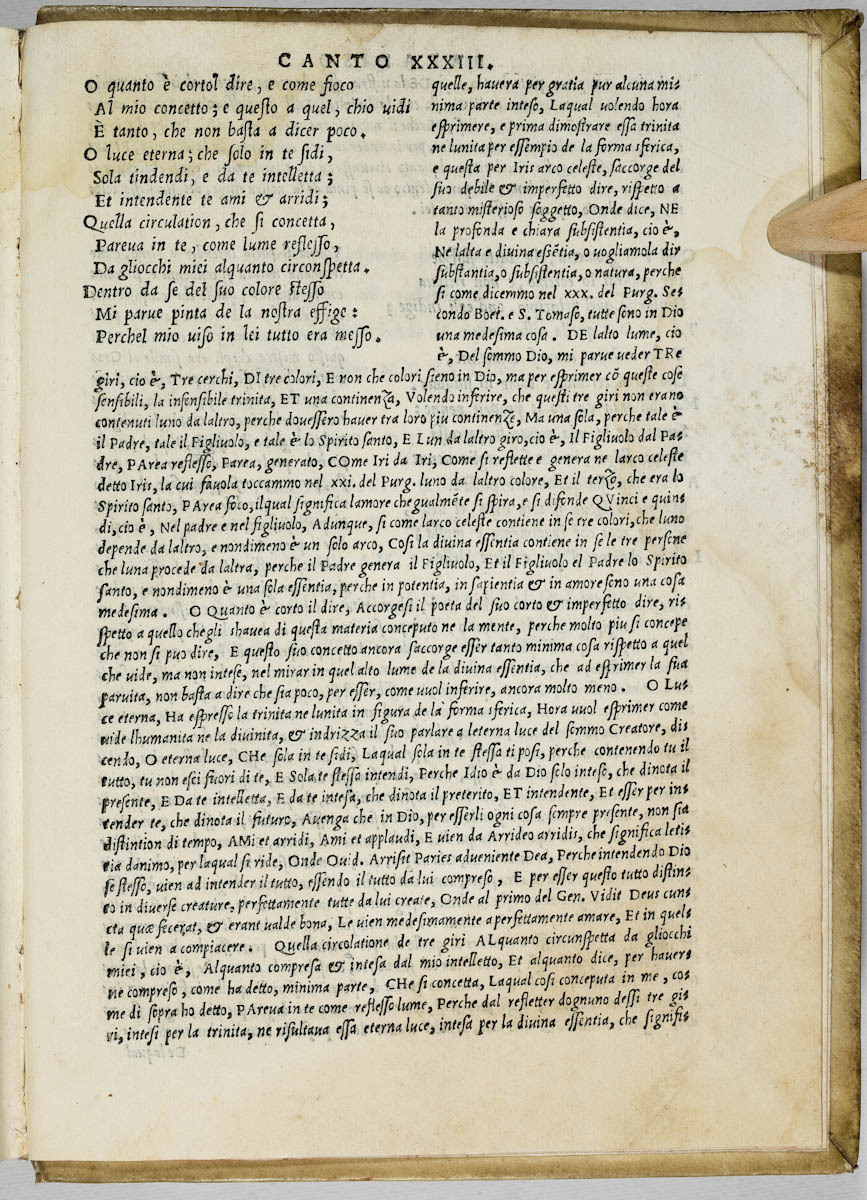 CANTO XXXIII.
O quanto è corto'l dire, e come fioco
Al mio concetto; e questo a quel, chio uidi
È tanto, che non basta a dicer poco.
O luce eterna; che solo in te sidi,
Sola tindendi, e da te intelletta;
Et intendente te ami & arridi;
Quella circulation, che si concetta,
Pareua in te, come lume reflesso,
Da gliocchi miei alquanto circonspetta.
Dentro da se del suo colore stesso
Mi parue pinta de la nostra effige:
Perchel mio uiso in lei tutto era messo.
quelle, hauera per gratia pur alcuna mi-
nima parte inteso, Laqual uolendo hora
esprimere, e prima dimostrare essa trinita
ne lunita per essempio de la forma sferica,
e questa per Iris arco celeste, saccorge del
suo debile & imperfetto dire, rispetto a
tanto misterioso soggetto, Onde dice, NE
la profonda e chiara subsistentia, cio è,
Ne lalta e diuina essētia, o uogliamola dir
substantia, o subsistentia, o natura, perche
si come dicemmo nel xxx. del Purg. Se-
condo Boet. e S. Tomaso, tutte sono in Dio
una medesima cosa. DE lalto lume, cio
è, Del sommo Dio, mi parue ueder TRe
giri, cio è, Tre cerchi, DI tre colori, E non che colori sieno in Dio, ma per esprimer cō queste cose
sensibili, la insensibile trinita, ET una continenza, Volendo inferire, che questi tre giri non erano
contenuti luno da laltro, perche douessero hauer tra loro piu continenze, Ma una sola, perche tale è
il Padre, tale il Figliuolo, e tale è lo Spirito santo, E Lun da laltro giro, cio è, Il Figliuolo dal Pa-
dre, PArea reflesso, Parea, generato, COme Iri da Iri, Come si reflette e genera ne larco celeste
detto Iris, la cui fauola toccammo nel xxi. del Purg. luno da laltro colore, Et il terzo, che era lo
Spirito santo, PArea foco, ilqual significa lamore che gualmēte si spira, e si difonde QVinci e quin-
di, cio è, Nel padre e nel figliuolo, Adunque, si come larco celeste contiene in se tre colori, che luno
depende da laltro, e nondimeno è un solo arco, Cosi la diuina essentia contiene in se le tre persone
che luna procede da laltra, perche il Padre genera il Figliuolo, Et il Figliuolo el Padre lo Spirito
santo, e nondimeno è una sola essentia, perche in potentia, in sapientia & in amore sono una cosa
medesima. O Quanto è corto il dire, Accorgesi il poeta del suo corto & imperfetto dire, ris-
petto a quello chegli shauea di questa materia conceputo ne la mente, perche molto piu si concepe
che non si puo dire, E questo suo concetto ancora saccorge esser tanto minima cosa rispetto a quel
che uide, ma non intese, nel mirar in quel alto lume de la diuina essentia, che ad esprimer la sua
paruita, non basta a dire che sia poco, per esser, come uuol inferire, ancora molto meno. O Lu-
ce eterna, Ha espresso la trinita ne lunita in figura de la forma sferica, Hora uuol esprimer come
uide lhumanita ne la diuinita, & indrizza il suo parlare a leterna luce del sommo Creatore, di-
cendo, O eterna luce, CHe sola in te sidi, Laqual sola in te stessa ti posi, perche contenendo tu il
tutto, tu non esci fuori di te, E Sola te stessa intendi, Perche Idio è da Dio solo inteso, che dinota il
presente, E Da te intelletta, E da te intesa, che dinota il preterito, ET intendente, Et esser per in-
tender te, che dinota il futuro, Auenga che in Dio, per esserli ogni cosa sempre presente, non sia
distintion di tempo, AMi et arridi, Ami et applaudi, E uien da Arrideo arridis, che significa leti-
tia danimo, per laqual si ride, Onde Ouid. Arrisit Paries adueniente Dea, Perche intendendo Dio
se stesso, uien ad intender il tutto, essendo il tutto da lui compreso, E per esser questo tutto distin-
to in diuerse creature, perfettamente tutte da lui create, Onde al primo del Gen. Vidit Deus cun-
cta quæ fecerat, & erant ualde bona, Le uien medesimamente a perfettamente amare, Et in quel-
le si uien a compiacere. Quella circolatione de tre giri ALquanto circunspetta da gliocchi
miei, cio è, Alquanto compresa & intesa dal mio intelletto, Et alquanto dice, per hauer-
ne compreso, come ha detto, minima parte, CHe si concetta, Laqual cosi conceputa in me, co-
me di sopra ho detto, PAreua in te come reflesso lume, Perche dal refletter dognuno dessi tre gi-
ri, intesi per la trinita, ne risultaua essa eterna luce, intesa per la diuina essentia, che signifi-